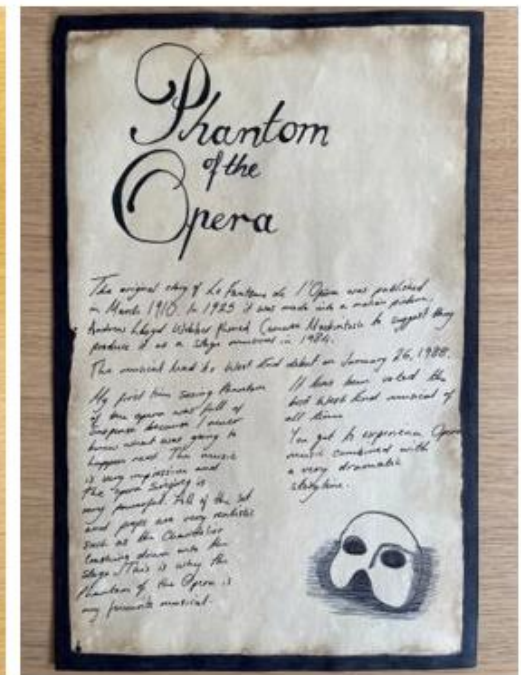 Phantom
of the
Opera
The original story of Le Fantome de l'Opera was published
in March 1910. In 1925 it was made into a motion picture.
Andrew Lloyd Webber Phoned Cameron Mackintosh to suggest they
produce it as a stage musical in 1984.
The musical had its West End debut on January 26, 1988.
My first time seeing Phantom
of the opera was full of
Suspense because I never
knew what was going to
happen next. The music
is very impressive and
the opera singing is
very powerful. All of the set
and props are very realistic
such as the Chandelier
Crashing down onto the
Stage. This is why the
Phantom of the Opera is
my favourite musical.
It has been voted the
best West End musical of
all time
You get to experience Opera
music combined with
a very dramatic
storyline.